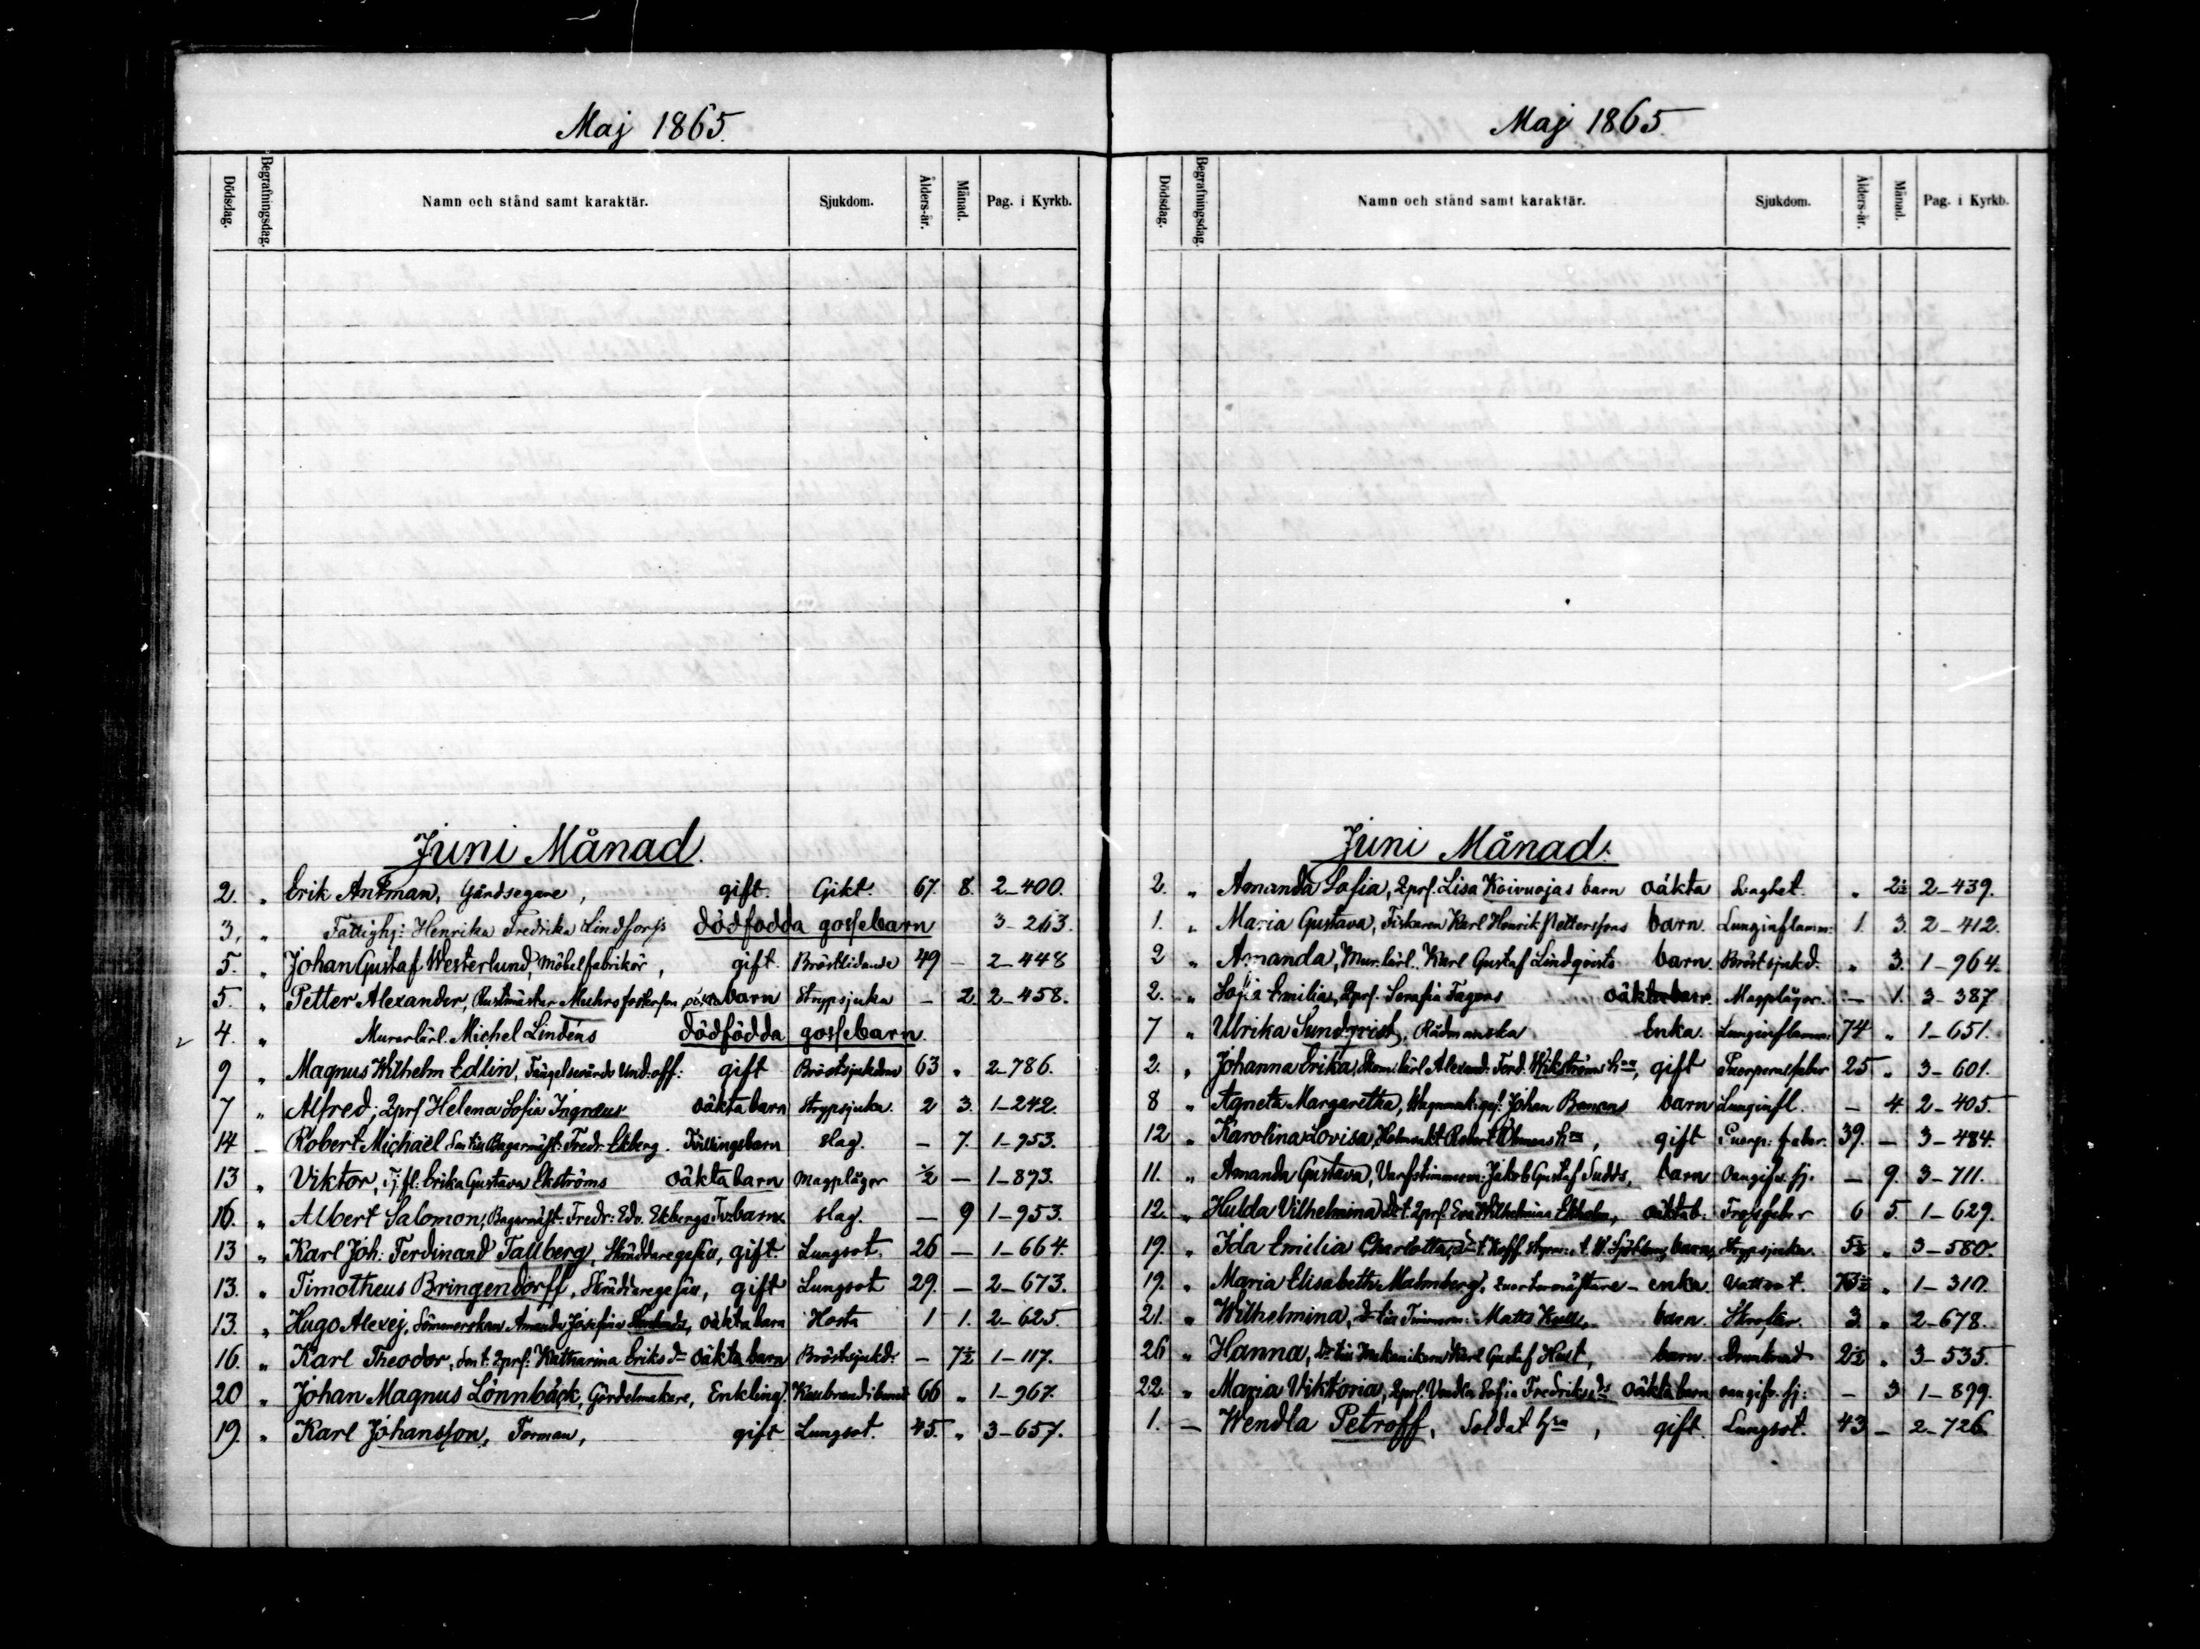 Maj 1865.
Dödsdag. Begrafningsdag. Namn och stånd samt karaktär. Sjukdom. Ålders-år. Månad. Pag. i Kyrkb.
Juni Månad.
2. " Erik Antman, Gårdsegare, gift. Gikt. 67. 8. 2-400.
3. " Fattighj: Henrika Fredrika Lindfors dödfodda gossebarn 3-263.
5. " Johan Gustaf Westerlund, Möbelfabrikör, gift. Bröstlidande 49 - 2-448
5. " Petter Alexander, barn Strypsjuka - 2. 2-458.
4. " Murarlärl. Michel Lindéns dödfödda gossebarn.
9 " Magnus Wilhelm Edlin, Fängelsevårds Und:off: gift Bröstsjukdom 63 " 2-786.
7 " Alfred, 2prs Helena Sofia Ingraeus oäkta barn Strypsjuka. 2 3. 1-242.
14 - Robert Michael Son till Bagarmäst. Fredr. Ekberg. Tvillingebarn slag. - 7. 1-953.
13 " Viktor, Tj.fl. Erika Gustava Ekströms oäkta barn Magplågor ½ - 1-893.
16. " Albert Salomon, Bagarmäst: Fredr: Edv. Ekbergs Tv:barn. slag. - 9 1-953.
13 " Karl Joh: Ferdinand Tallberg, Skräddaregesäll, gift. Lungsot. 26 - 1-664.
13. " Timotheus Bringendorff, Skräddaregesäll, gift Lungsot 29. - 2-673.
13. " Hugo Alexej, Sömmerskan Amanda Josefina oäkta barn Hosta 1 1. 2-625.
16. " Karl Theodor, Son t. 2prs: Katharina Eriksdr oäkta barn Bröstsjukd: - 7½ 1-117.
20 " Johan Magnus Lönnbäck, Gördelmakare, Enkling. 66 " 1-967.
19. " Karl Johansson, Forman, gift Lungsot. 45. " 3-657.
Maj 1865
Dödsdag. Begrafningsdag. Namn och stånd samt karaktär. Sjukdom. Ålders-år. Månad. Pag. i Kyrkb.
Juni Månad.
2. " Amanda Sofia, 2prs. Lisa Koivuojas barn oäkta Svaghet. " 2½ 2-439.
1. " Maria Gustava, Fiskaren Karl Henrik Petterssons barn. Lunginflamm: 1. 3. 2-412.
2 " Amanda, Mur.lärl. Karl Gustaf Lindqvists barn. Bröstsjukd. " 3. 1-964.
2. " Sofia Emilia, 2prs. Serafia Fagers oäkta barn. Magplågor. - 1. 3-387
7 " Ulrika Sundqvist, Rådmanska Enka. Lunginflamm: 74 " 1-651.
2. " Johanna Erika, Alexand: Ferd. Wikströms hru, gift 25 " 3-601.
8 " Agneta Margaretha, Wagnmak:ges: Johan Bomans barn Lunginfl. - 4. 2-405.
12 " Karolina Lovisa, Robert hru, gift Puerp: feber. 39. - 3-484.
11. " Amanda Gustava, Varfstimmerm: Jakob Gustaf Sudds, barn oangifv. sj. - 9. 3-711.
12. " Hulda Vilhelmina, Dr t. 2prs. Eva Wilhelmina Ekholm, oäkta b. 6 5. 1-629.
19. " Ida Emilia Charlotta, barn, Strypsjuka. 5½ " 3-580.
19. " Maria Elisabeth Malmberg, enka. Vattsot. 73½ " 1-310.
21. " Wilhelmina, Dr till Timmerm: Matts barn. Skrofler. 3. " 2-678.
26 " Hanna, Dr till Mekanikern Karl Gustaf Hast, barn. Drunknad 2½ " 3-535.
22. " Maria Viktoria, 2prs. Vendla Sofia Fredriksdrs oäkta barn oangifv. sj: - 3 1-899.
1. - Wendla Petroff, Soldat hru, gift. Lungsot. 43 - 2-726